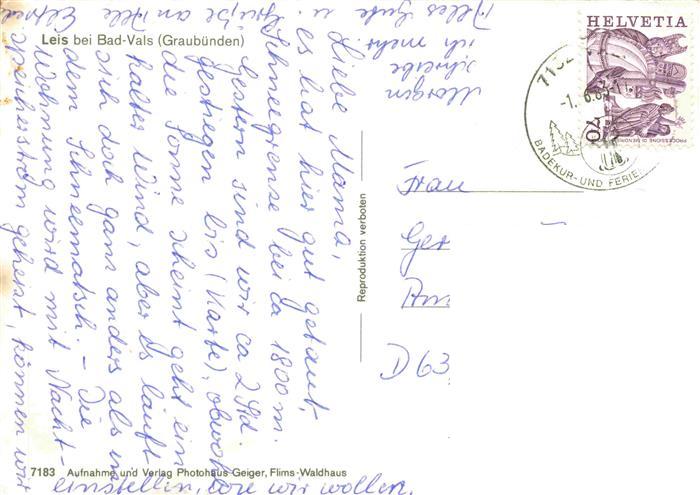 Leis bei Bad-Vals (Graubünden)
Liebe Mama,
es hat hier gut getaut,
Schneegrenze bei ca 1800 m.
Gestern sind wir ca 2 Std.
gestiegen bis (Karte), obwohl
die Sonne scheint geht ein
kalter Wind, aber es läuft
sich doch ganz anders als in
dem Schneematsch. - Die
Wohnung wird mit Nacht-
speicherström geheizt, können wir
einstellen, wie wir wollen.
Morgen
schreibe
ich mehr.
Alles Gute u.
Grüße an Alle
Frau
Ger
D 63
Reproduktion verboten
7183 Aufnahme und Verlag Photohaus Geiger, Flims-Waldhaus
HELVETIA
70
PROCESSIONE DI MENDRISIO
7132
-1. 6.83-11
BADEKUR- UND FERIE